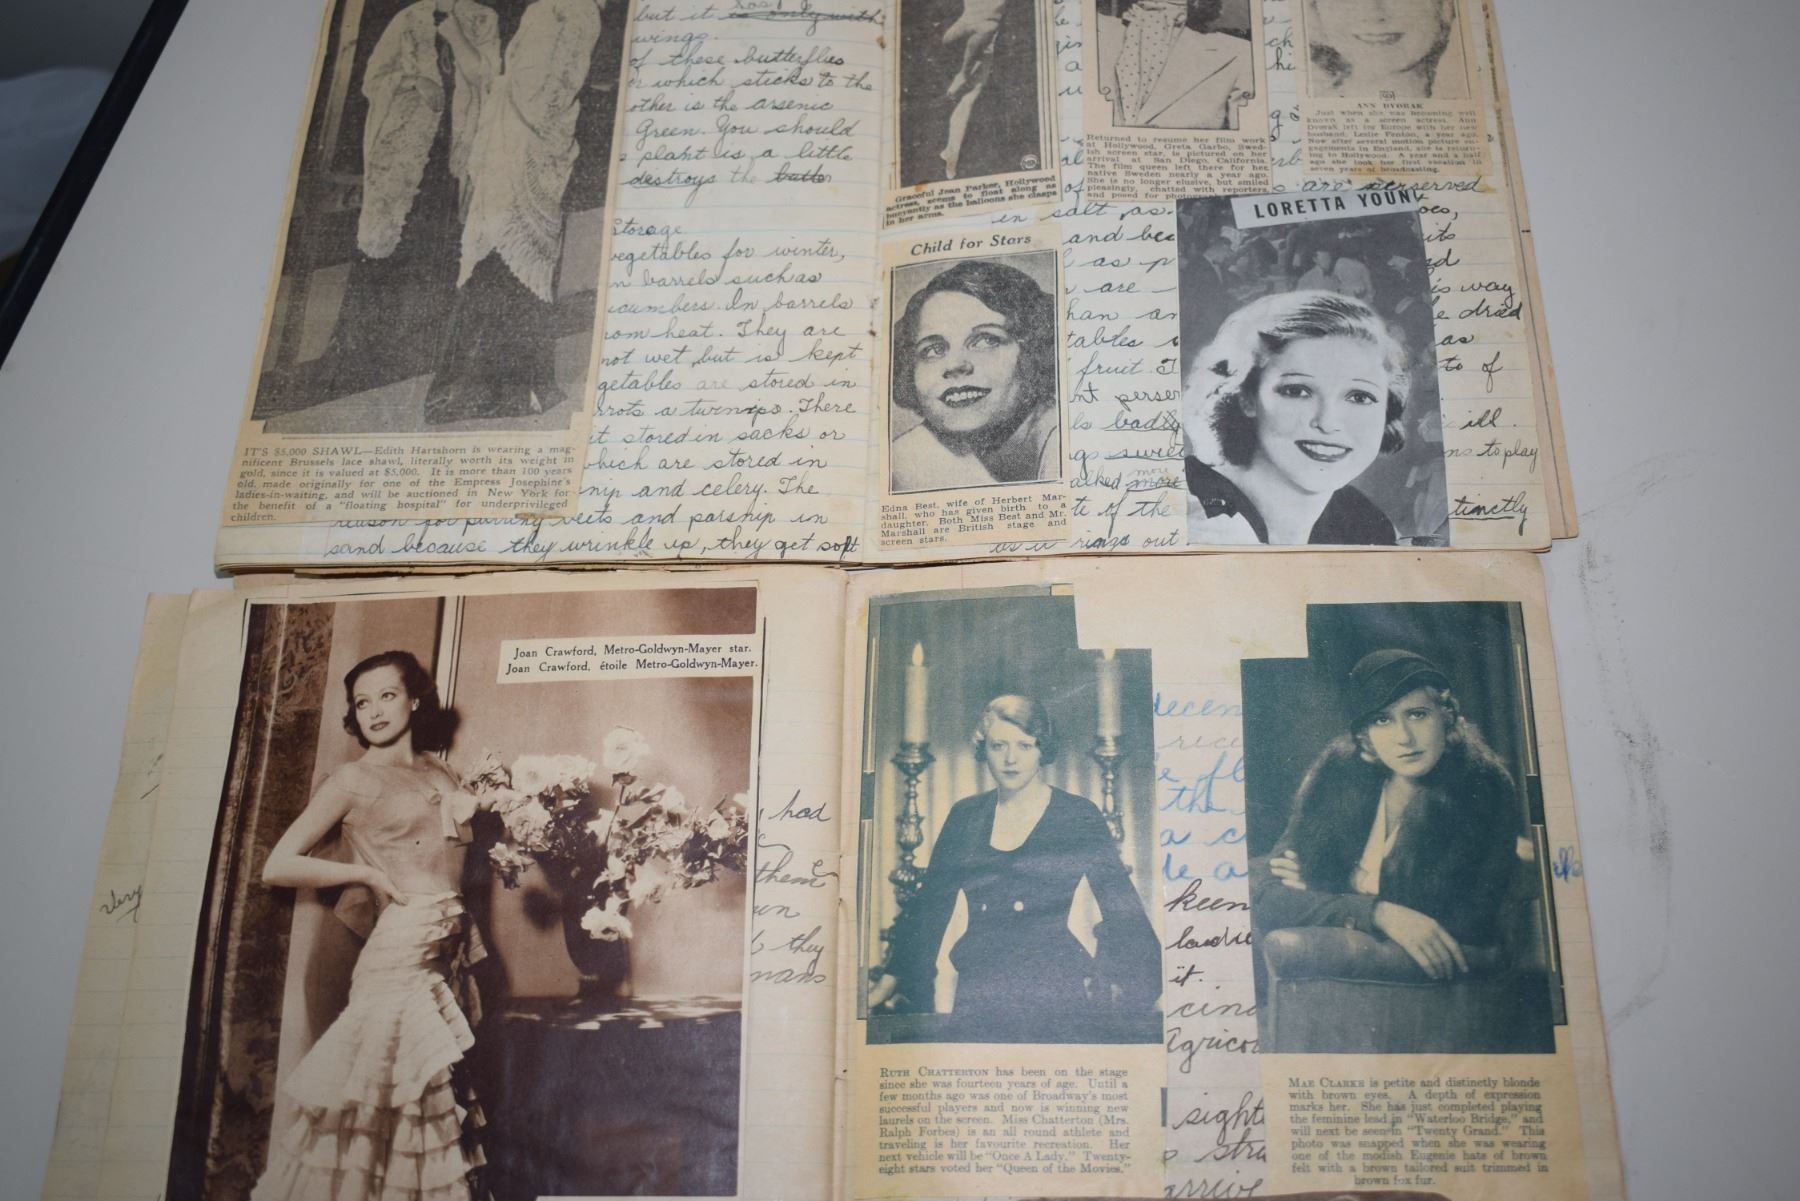 but it was only with
wings.
of these butterflies
which sticks to the
other is the arsenic
Green. You should
plant is a little
destroys the butter
Storage
vegetables for winter,
in barrels such as
cucumbers. In barrels
from heat. They are
not wet, but is kept
getables are stored in
rrots a turnips. There
it stored in sacks or
which are stored in
nip and celery. The
reason for putting beets and parsnip in
sand because they wrinkle up, they get soft
IT'S $5,000 SHAWL—Edith Hartshorn is wearing a mag-
nificent Brussels lace shawl, literally worth its weight in
gold, since it is valued at $5,000. It is more than 100 years
old, made originally for one of the Empress Josephine's
ladies-in-waiting, and will be auctioned in New York for
the benefit of a "floating hospital" for underprivileged
children.
Graceful Jean Parker, Hollywood
actress, seems to float along as
buoyantly as the balloons she clasps
in her arms.
Returned to resume her film work
at Hollywood, Greta Garbo, Swed-
ish screen star, is pictured on her
arrival at San Diego, California.
The film queen left there for her
native Sweden nearly a year ago.
She is no longer elusive, but smiled
pleasingly, chatted with reporters,
and posed for
ANN DVORAK
Just when she was becoming well
known as a screen actress, Ann
Dvorak left for Europe with her new
husband, Leslie Fenton, a year ago.
Now after several motion picture en-
gagements in England, she is return-
ing to Hollywood. A year and a half
ago she took her first vacation in
seven years of broadcasting.
are perserved
in salt as
and bec
as p
are
han an
tables
fruit. I
nt perser
ls badly
gs swee
alked more more
te of the
as it rings out.
Child for Stars
Edna Best, wife of Herbert Mar-
shall, who has given birth to a
daughter. Both Miss Best and Mr.
Marshall are British stage and
screen stars.
LORETTA YOUN
oes,
its
nd
is way
e dried
as
to of
ill.
ns to play
tinctly
Very
Joan Crawford, Metro-Goldwyn-Mayer star.
Joan Crawford, étoile Metro-Goldwyn-Mayer.
had
them
wn
they
mans
decem
rice
e fl
the
a c
le a
keen
laudie
it.
cing
Agricol
sight
stra
arrive
RUTH CHATTERTON has been on the stage
since she was fourteen years of age. Until a
few months ago was one of Broadway's most
successful players and now is winning new
laurels on the screen. Miss Chatterton (Mrs.
Ralph Forbes) is an all round athlete and
traveling is her favourite recreation. Her
next vehicle will be "Once A Lady." Twenty-
eight stars voted her "Queen of the Movies."
MAE CLARKE is petite and distinctly blonde
with brown eyes. A depth of expression
marks her. She has just completed playing
the feminine lead in "Waterloo Bridge," and
will next be seen in "Twenty Grand." This
photo was snapped when she was wearing
one of the modish Eugenie hats of brown
felt with a brown tailored suit trimmed in
brown fox fur.